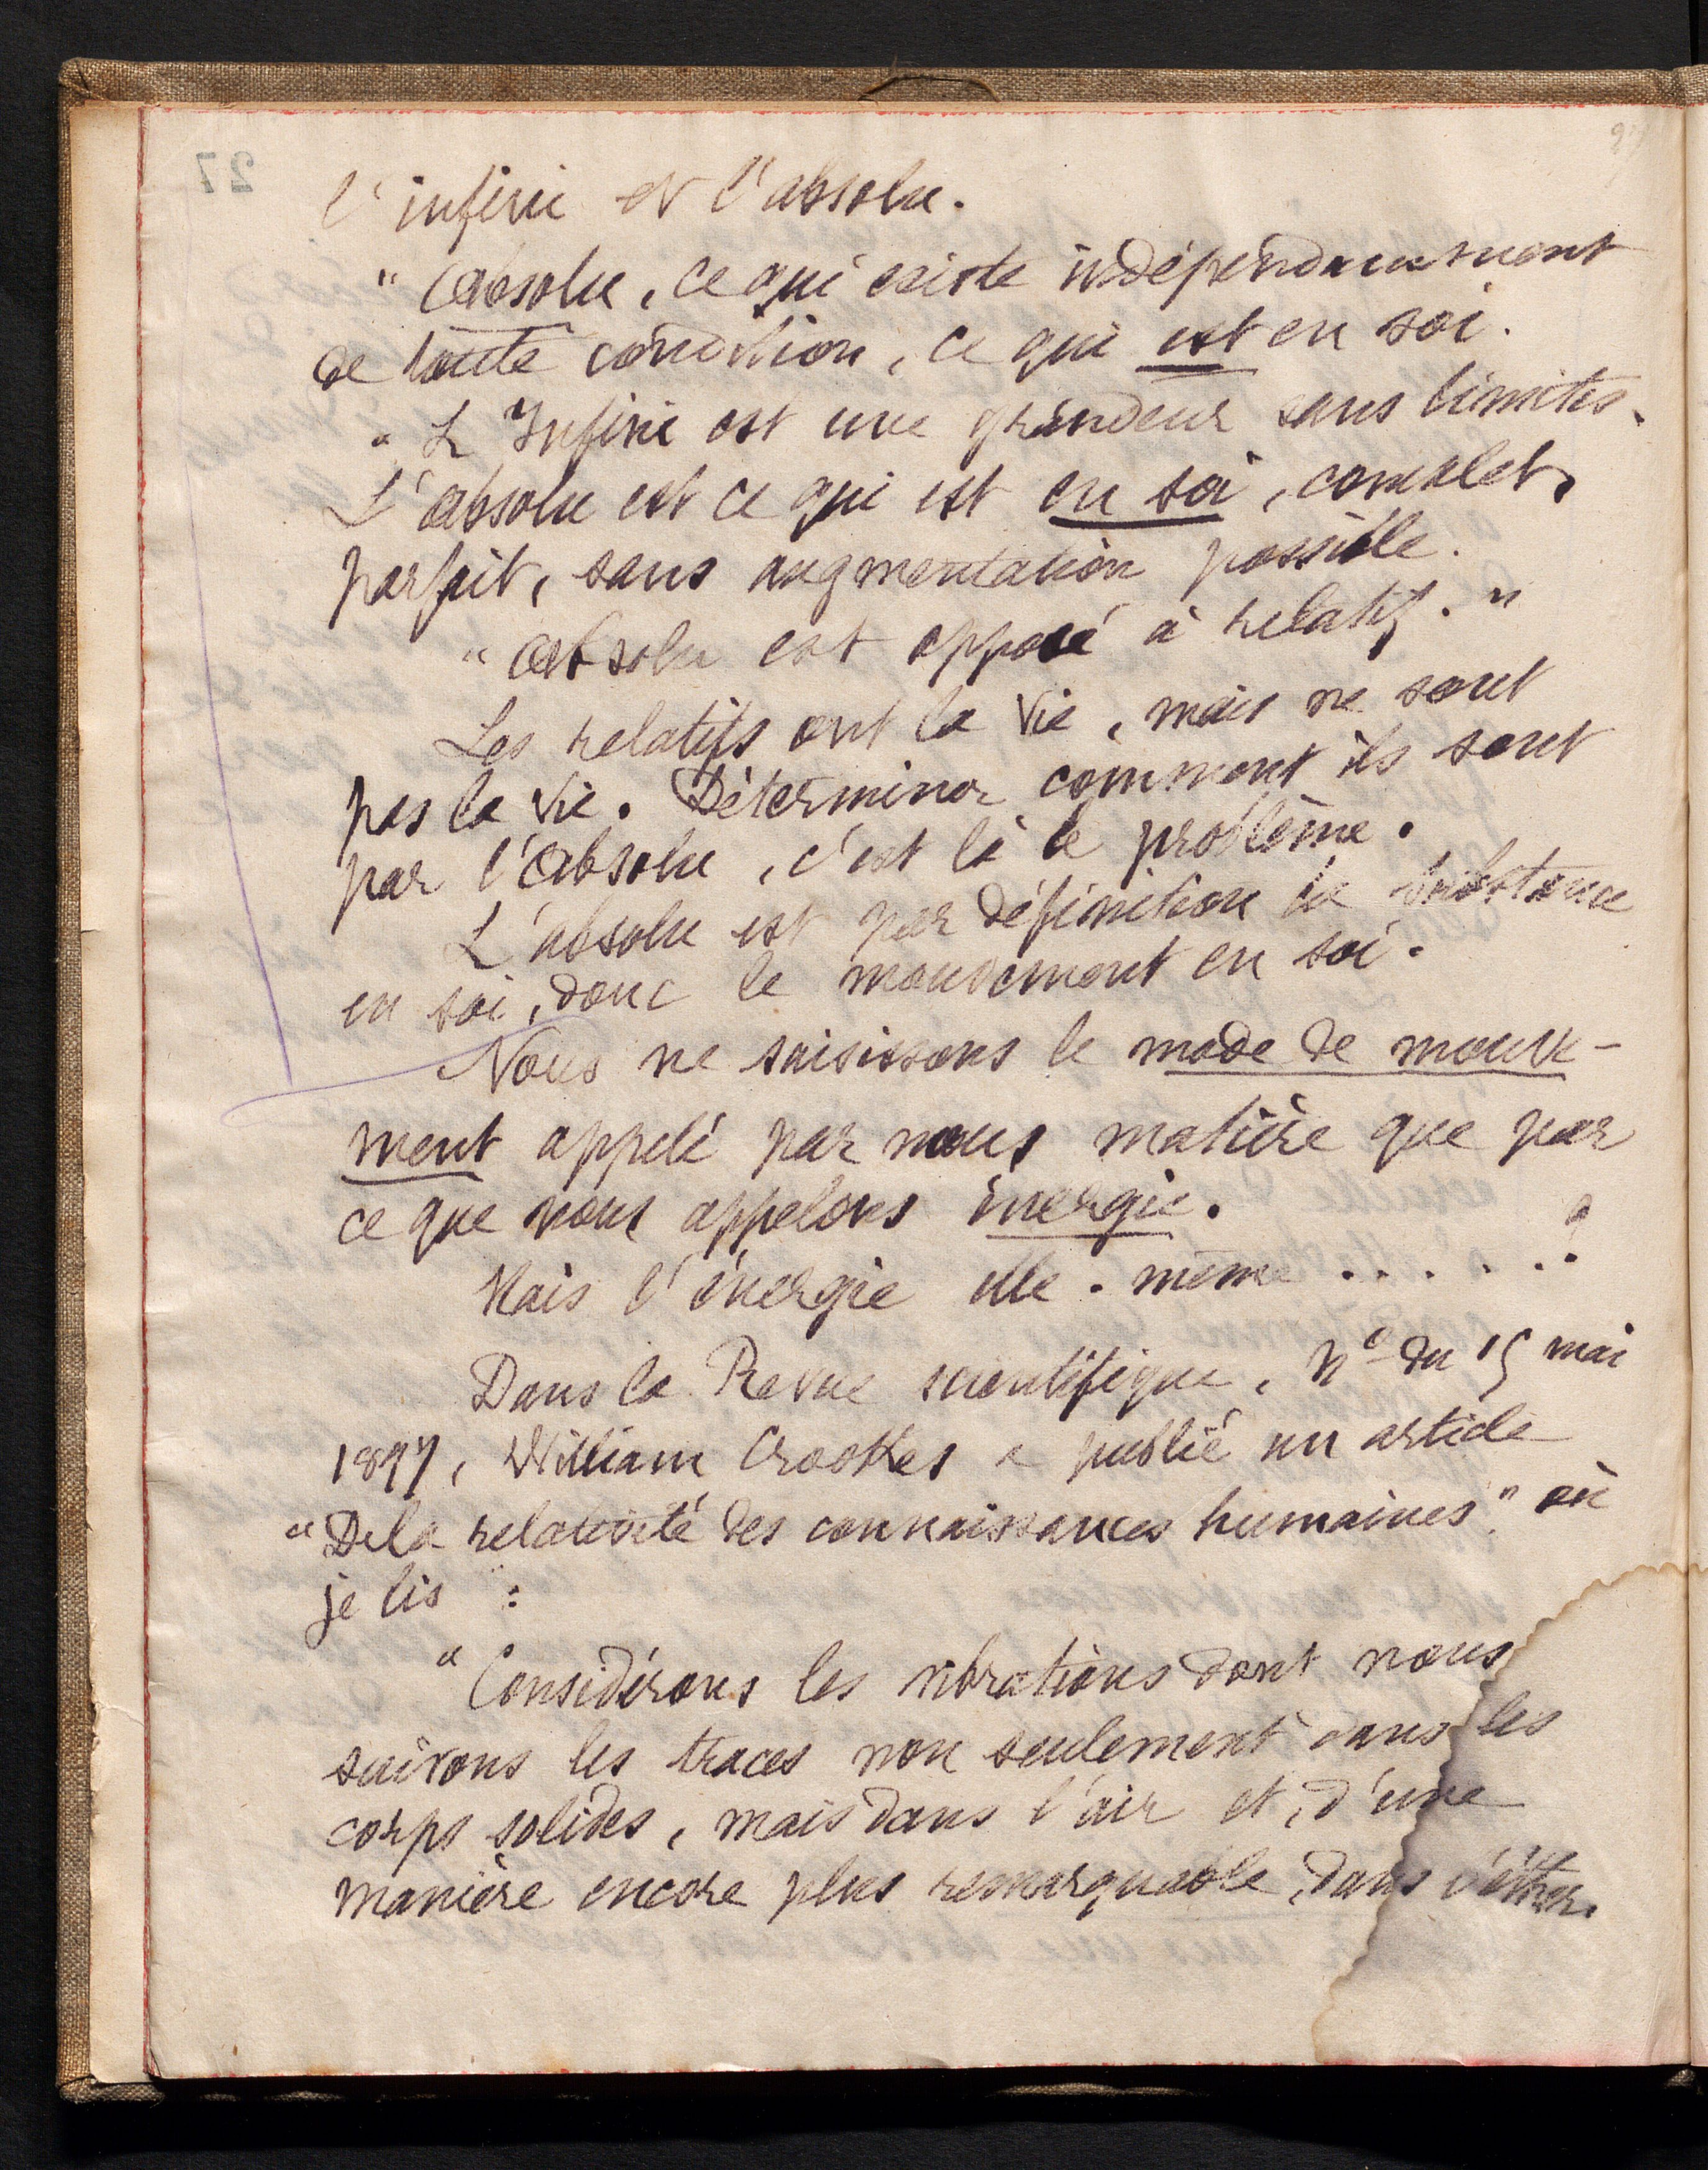 l'infini et l'absolu.
"Absolu, ce qui existe indépendamment
de toute condition, ce qui est en soi.
"L'Infini est une grandeur sans limites.
L'absolu est ce qui est en soi, complet,
parfait, sans augmentation possible.
"Absolu est opposé à relatif."
Les relatifs ont la Vie, mais ne sont
pas la Vie. Déterminer comment ils sont
par l'Absolu, c'est là le problème.
L'absolu est par définition la substance
en soi, donc le mouvement en soi.
Nous ne saisissons le mode de mouve-
ment appelé par nous matière que par
ce que nous appelons énergie.
Mais l'énergie elle-même . . . . . ?
Dans la Revue scientifique, No du 15 mai
1897, William Crookes a publié un article
"De la relativité des connaissances humaines" où
je lis :
"Considérons les vibrations dont nous
suivons les traces non seulement dans les
corps solides, mais dans l'air et, d'une
manière encore plus remarquable, dans l'éther.
27